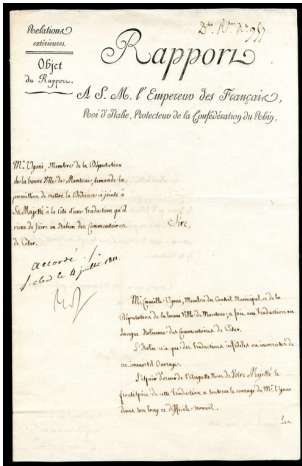 Relations
extérieures.
Objet
du Rapport.
Rapport
A S. M. l'Empereur des Français,
Roi d'Italie, Protecteur de la Confédération du Rhin.
Mr. Ugoni, Membre de la Députation
de la bonne Ville de
permission de mettre la Dédicace ci jointe à
Sa Majesté à la tête d'une Traduction qu'il
vient de faire en Italien des Commentaires
de César.
accordé
St. Cloud le 4 juillet 1811.
Sire,
Mr. Camille Ugoni, Membre du Conseil Municipal et de la
Députation de la bonne Ville de a fait une Traduction en
Langue Italienne des Commentaires de César.
L'Italie n'a que des Traductions infidèles ou incorrectes de
cet immortel Ouvrage.
L'espoir d'orner de l'Auguste Nom de Votre Majesté le
frontispice de cette Traduction a soutenu le courage de Mr. Ugoni
dans son long et difficile travail.